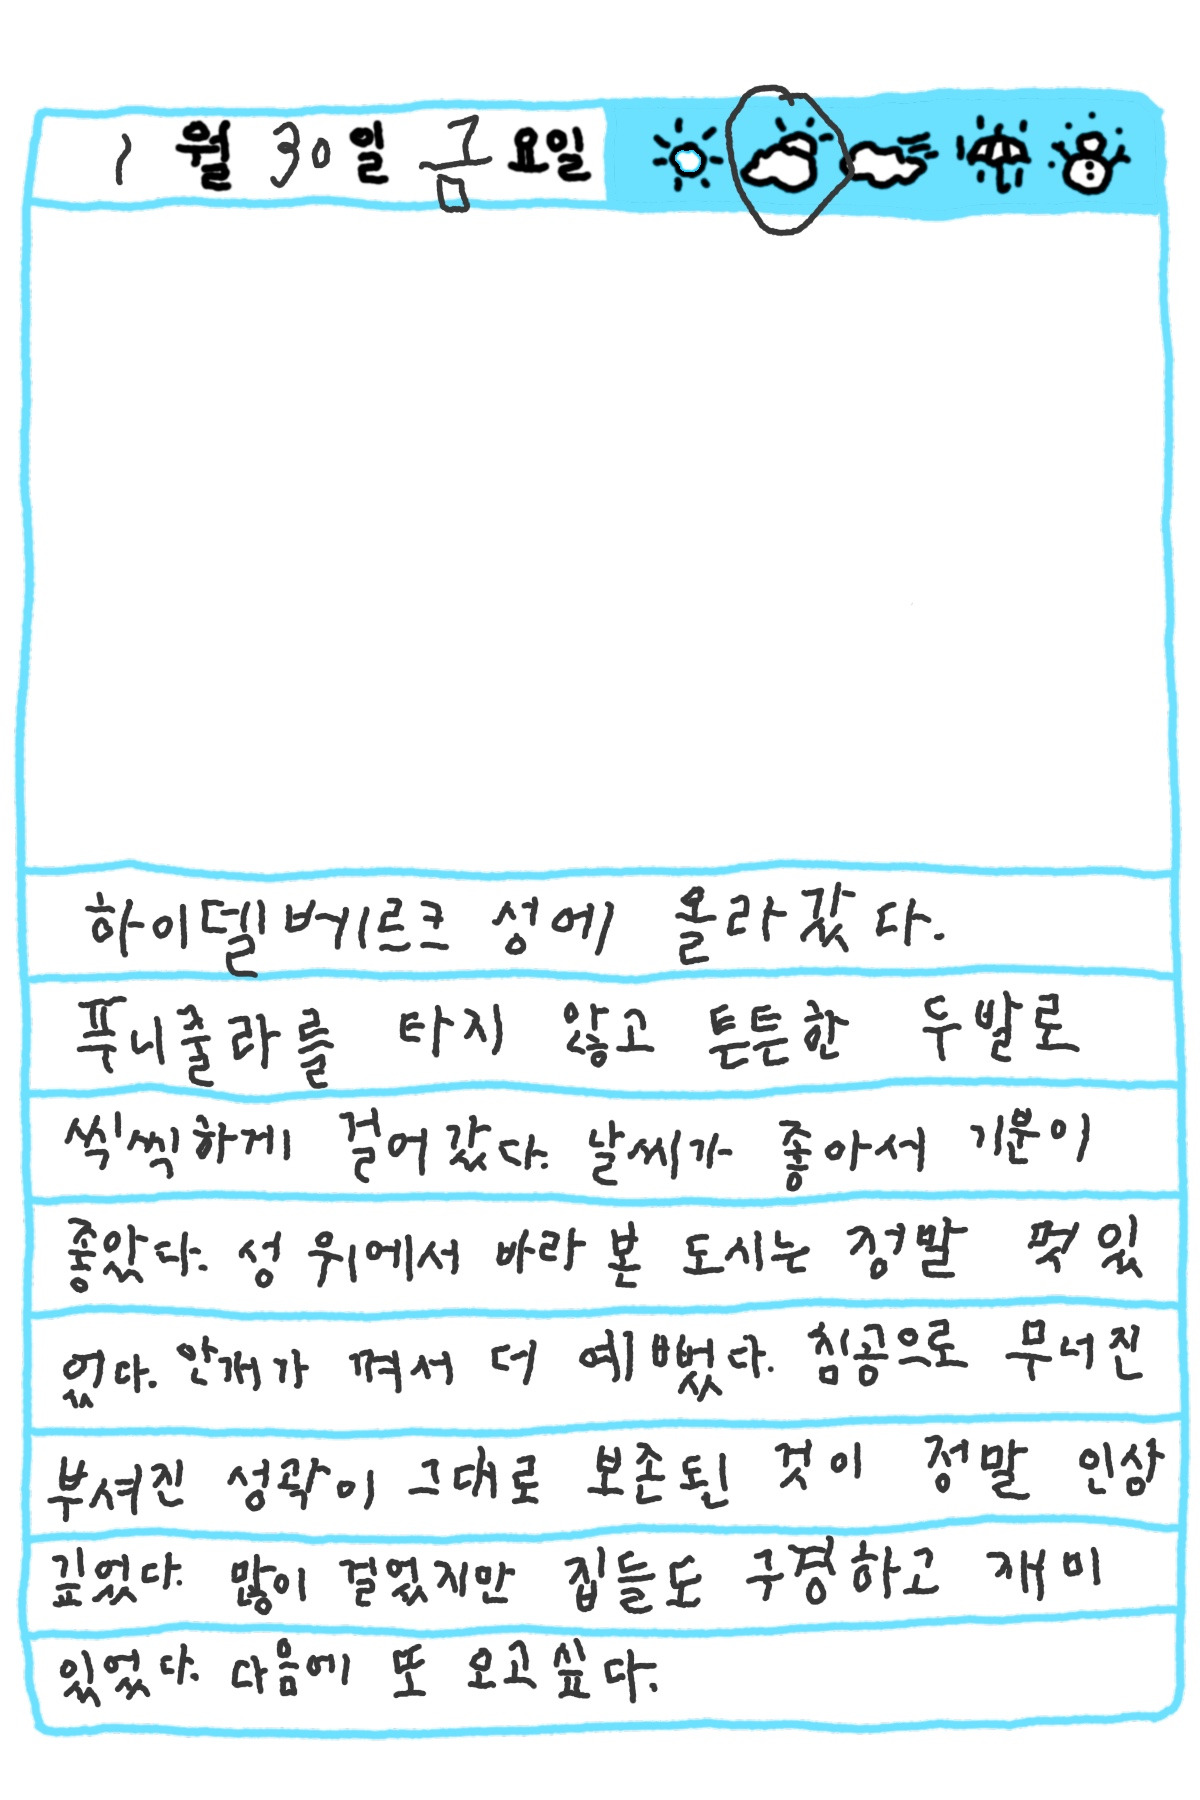 1 월 30 일 금 요일
하이델베르크 성에 올라갔다.
푸니쿨라를 타지 않고 튼튼한 두발로
씩씩하게 걸어갔다. 날씨가 좋아서 기분이
좋았다. 성 위에서 바라 본 도시는 정말 멋있
었다. 안개가 껴서 더 예뻤다. 침공으로 무너진
부셔진 성곽이 그대로 보존된 것이 정말 인상
깊었다. 많이 걸었지만 집들도 구경하고 재미
있었다. 다음에 또 오고싶다.